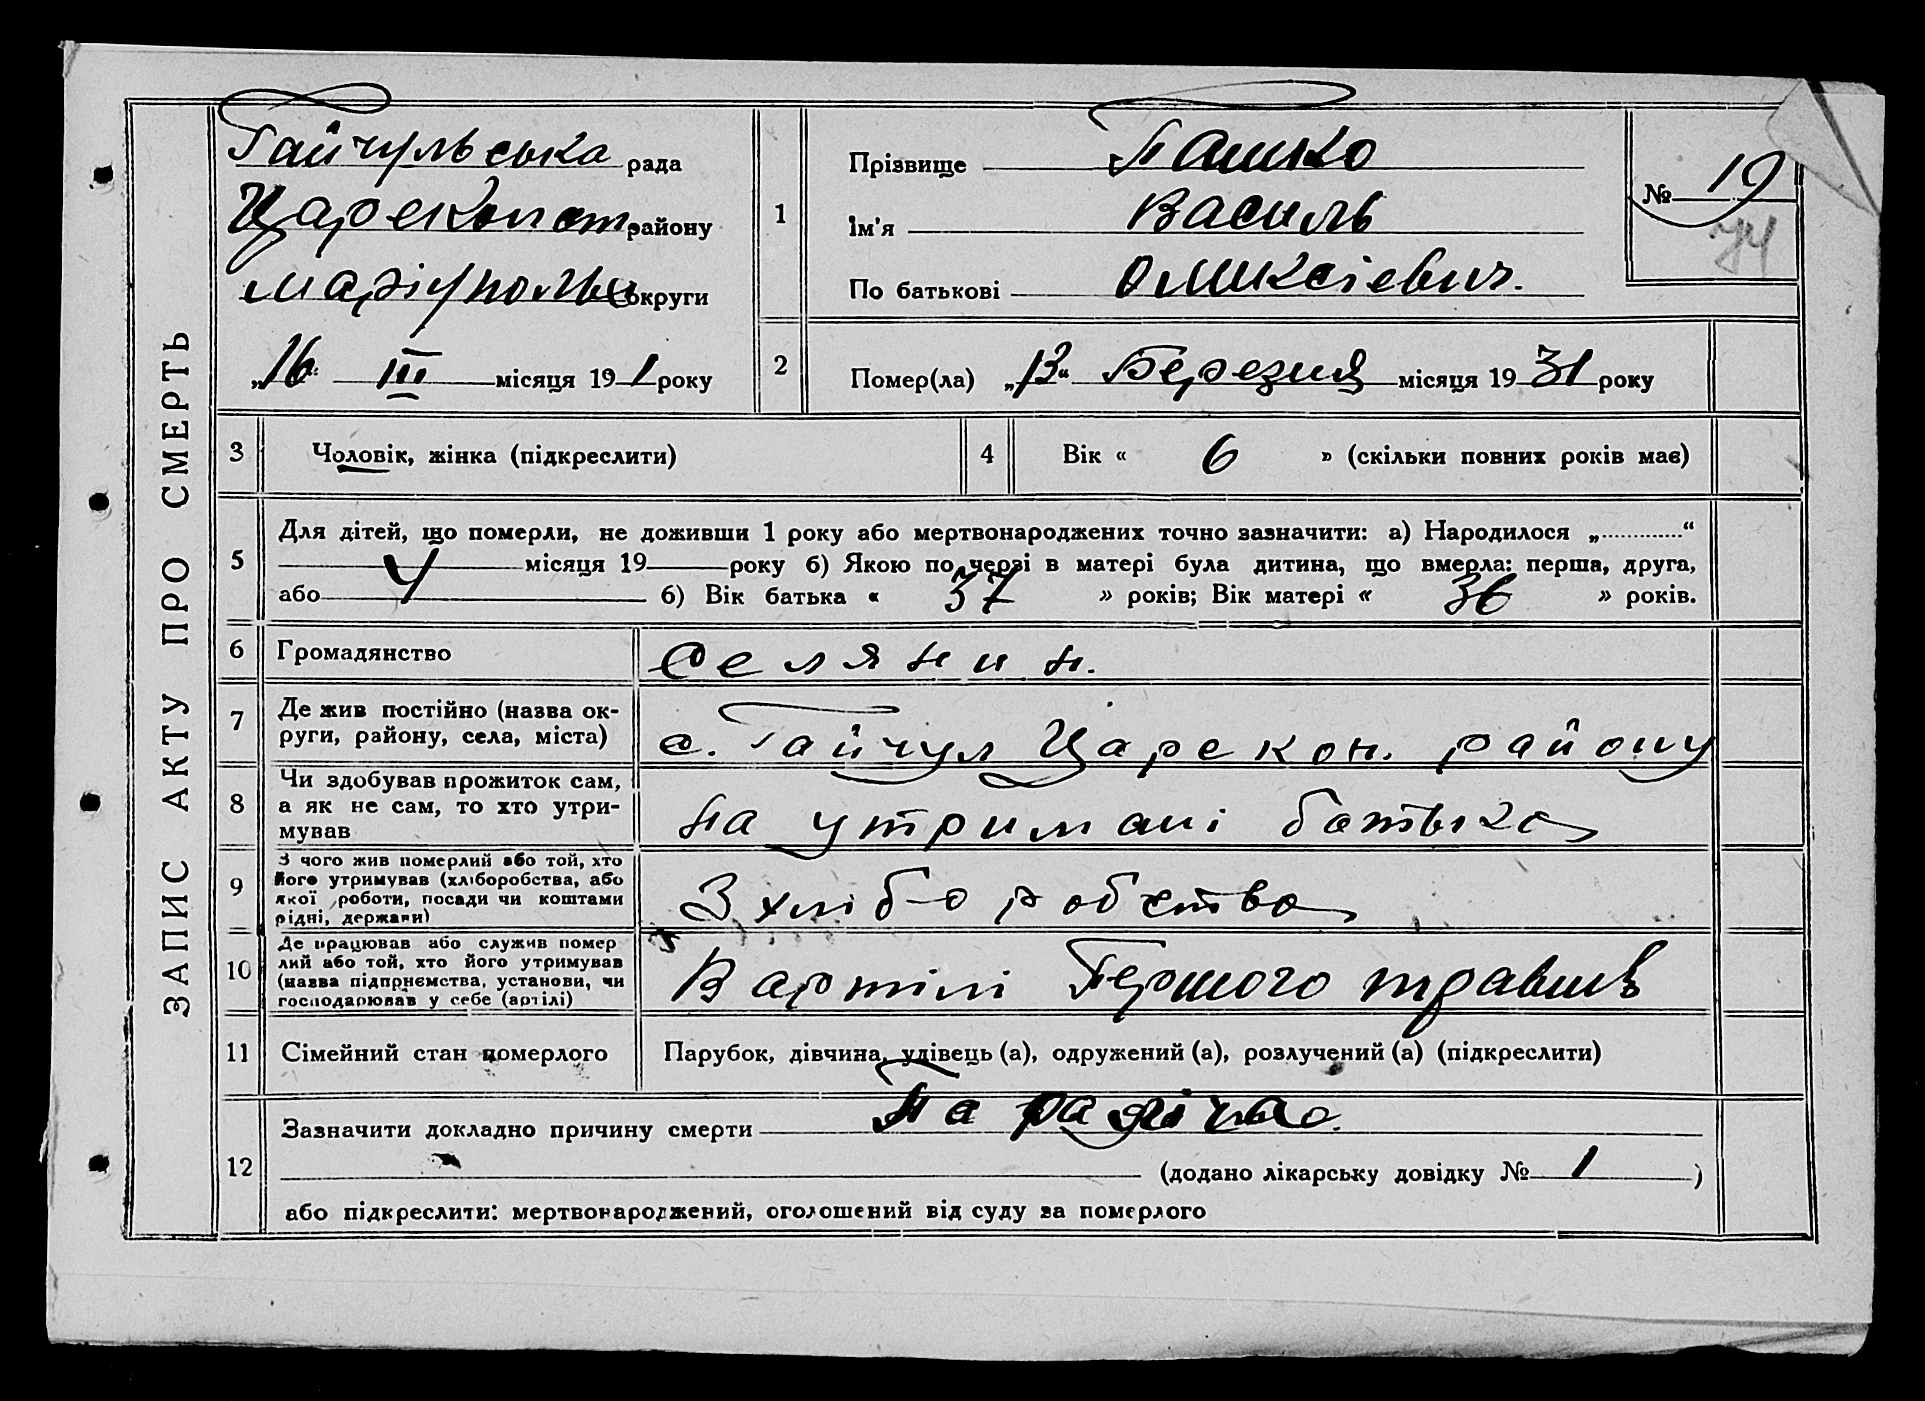 ЗАПИС АКТУ ПРО СМЕРТЬ
Гайчульська рада
Царекон ст району
маріупольс округи
„16“ III місяця 19 1 року
1
Прізвище Пашко
Ім'я Василь
По батькові Оликсієвич.
№ 19
74
2
Помер(ла) „13“ Березня місяця 19 31 року
3 Чоловік, жінка (підкреслити)
4 Вік « 6 » (скільки повних років має)
5
Для дітей, що померли, не доживши 1 року або мертвонароджених точно зазначити: а) Народилося „............“
місяця 19 року б) Якою по черзі в матері була дитина, що вмерла: перша, друга,
або 4 б) Вік батька « 37 » років; Вік матері « 36 » років.
6 Громадянство селянин.
7 Де жив постійно (назва ок-
руги, району, села, міста) с. Гайчул Царекон. району
8 Чи здобував прожиток сам,
а як не сам, то хто утри-
мував на утримані батька
9 З чого жив померлий або той, хто
його утримував (хліборобства, або
якої роботи, посади чи коштами
рідні, держави) З хліборобства
10 Де працював або служив помер
лий або той, хто його утримував
(назва підприємства, установи, чи
господарював у себе (артілі) В артілі Першого травня
11 Сімейний стан померлого Парубок, дівчина, удівець (а), одружений (а), розлучений (а) (підкреслити)
12
Зазначити докладно причину смерти
(додано лікарську довідку № 1 )
або підкреслити: мертвонароджений, оголошений від суду за померлого